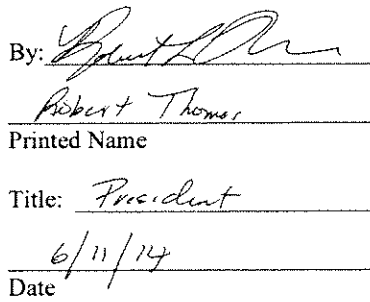 By: Robert L
Robert Thomas
Printed Name
Title: President
6/11/14
Date